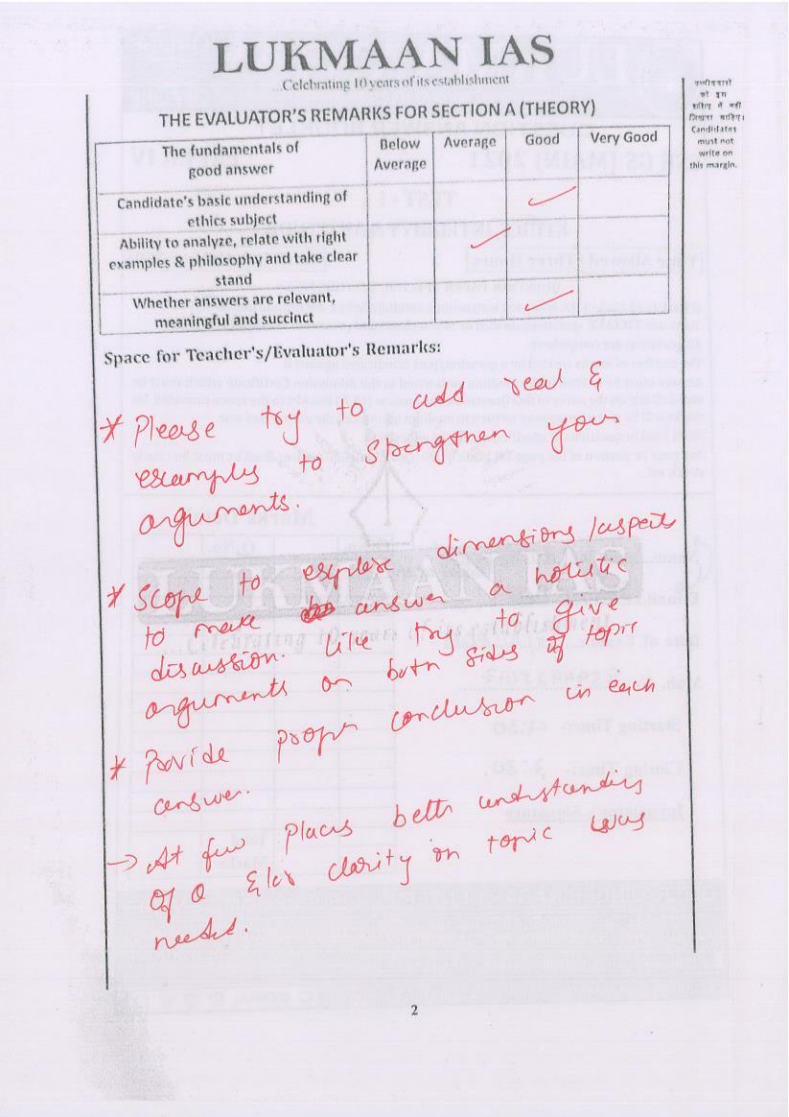 LUKMAAN IAS
...Celebrating 10 years of its establishment
THE EVALUATOR'S REMARKS FOR SECTION A (THEORY)
The fundamentals of good answer | Below Average | Average | Good | Very Good
Candidate's basic understanding of
ethics subject
Ability to analyze, relate with right
examples & philosophy and take clear
stand
Whether answers are relevant,
meaningful and succinct
उम्मीदवारों
को इस
हाशिए में नहीं
लिखना चाहिए।
Candidates
must not
write on
this margin.
Space for Teacher's/Evaluator's Remarks:
* Please try to add real &
examples to strengthen your
arguments.
* Scope to explore dimensions /aspects
to make answer a holistic
discussion. like try to give
arguments on both sides of topic
* Provide proper conclusion in each
answer.
→ At few places better understanding
of Q & clarity on topic was
needed.
LUKMAAN IAS
2